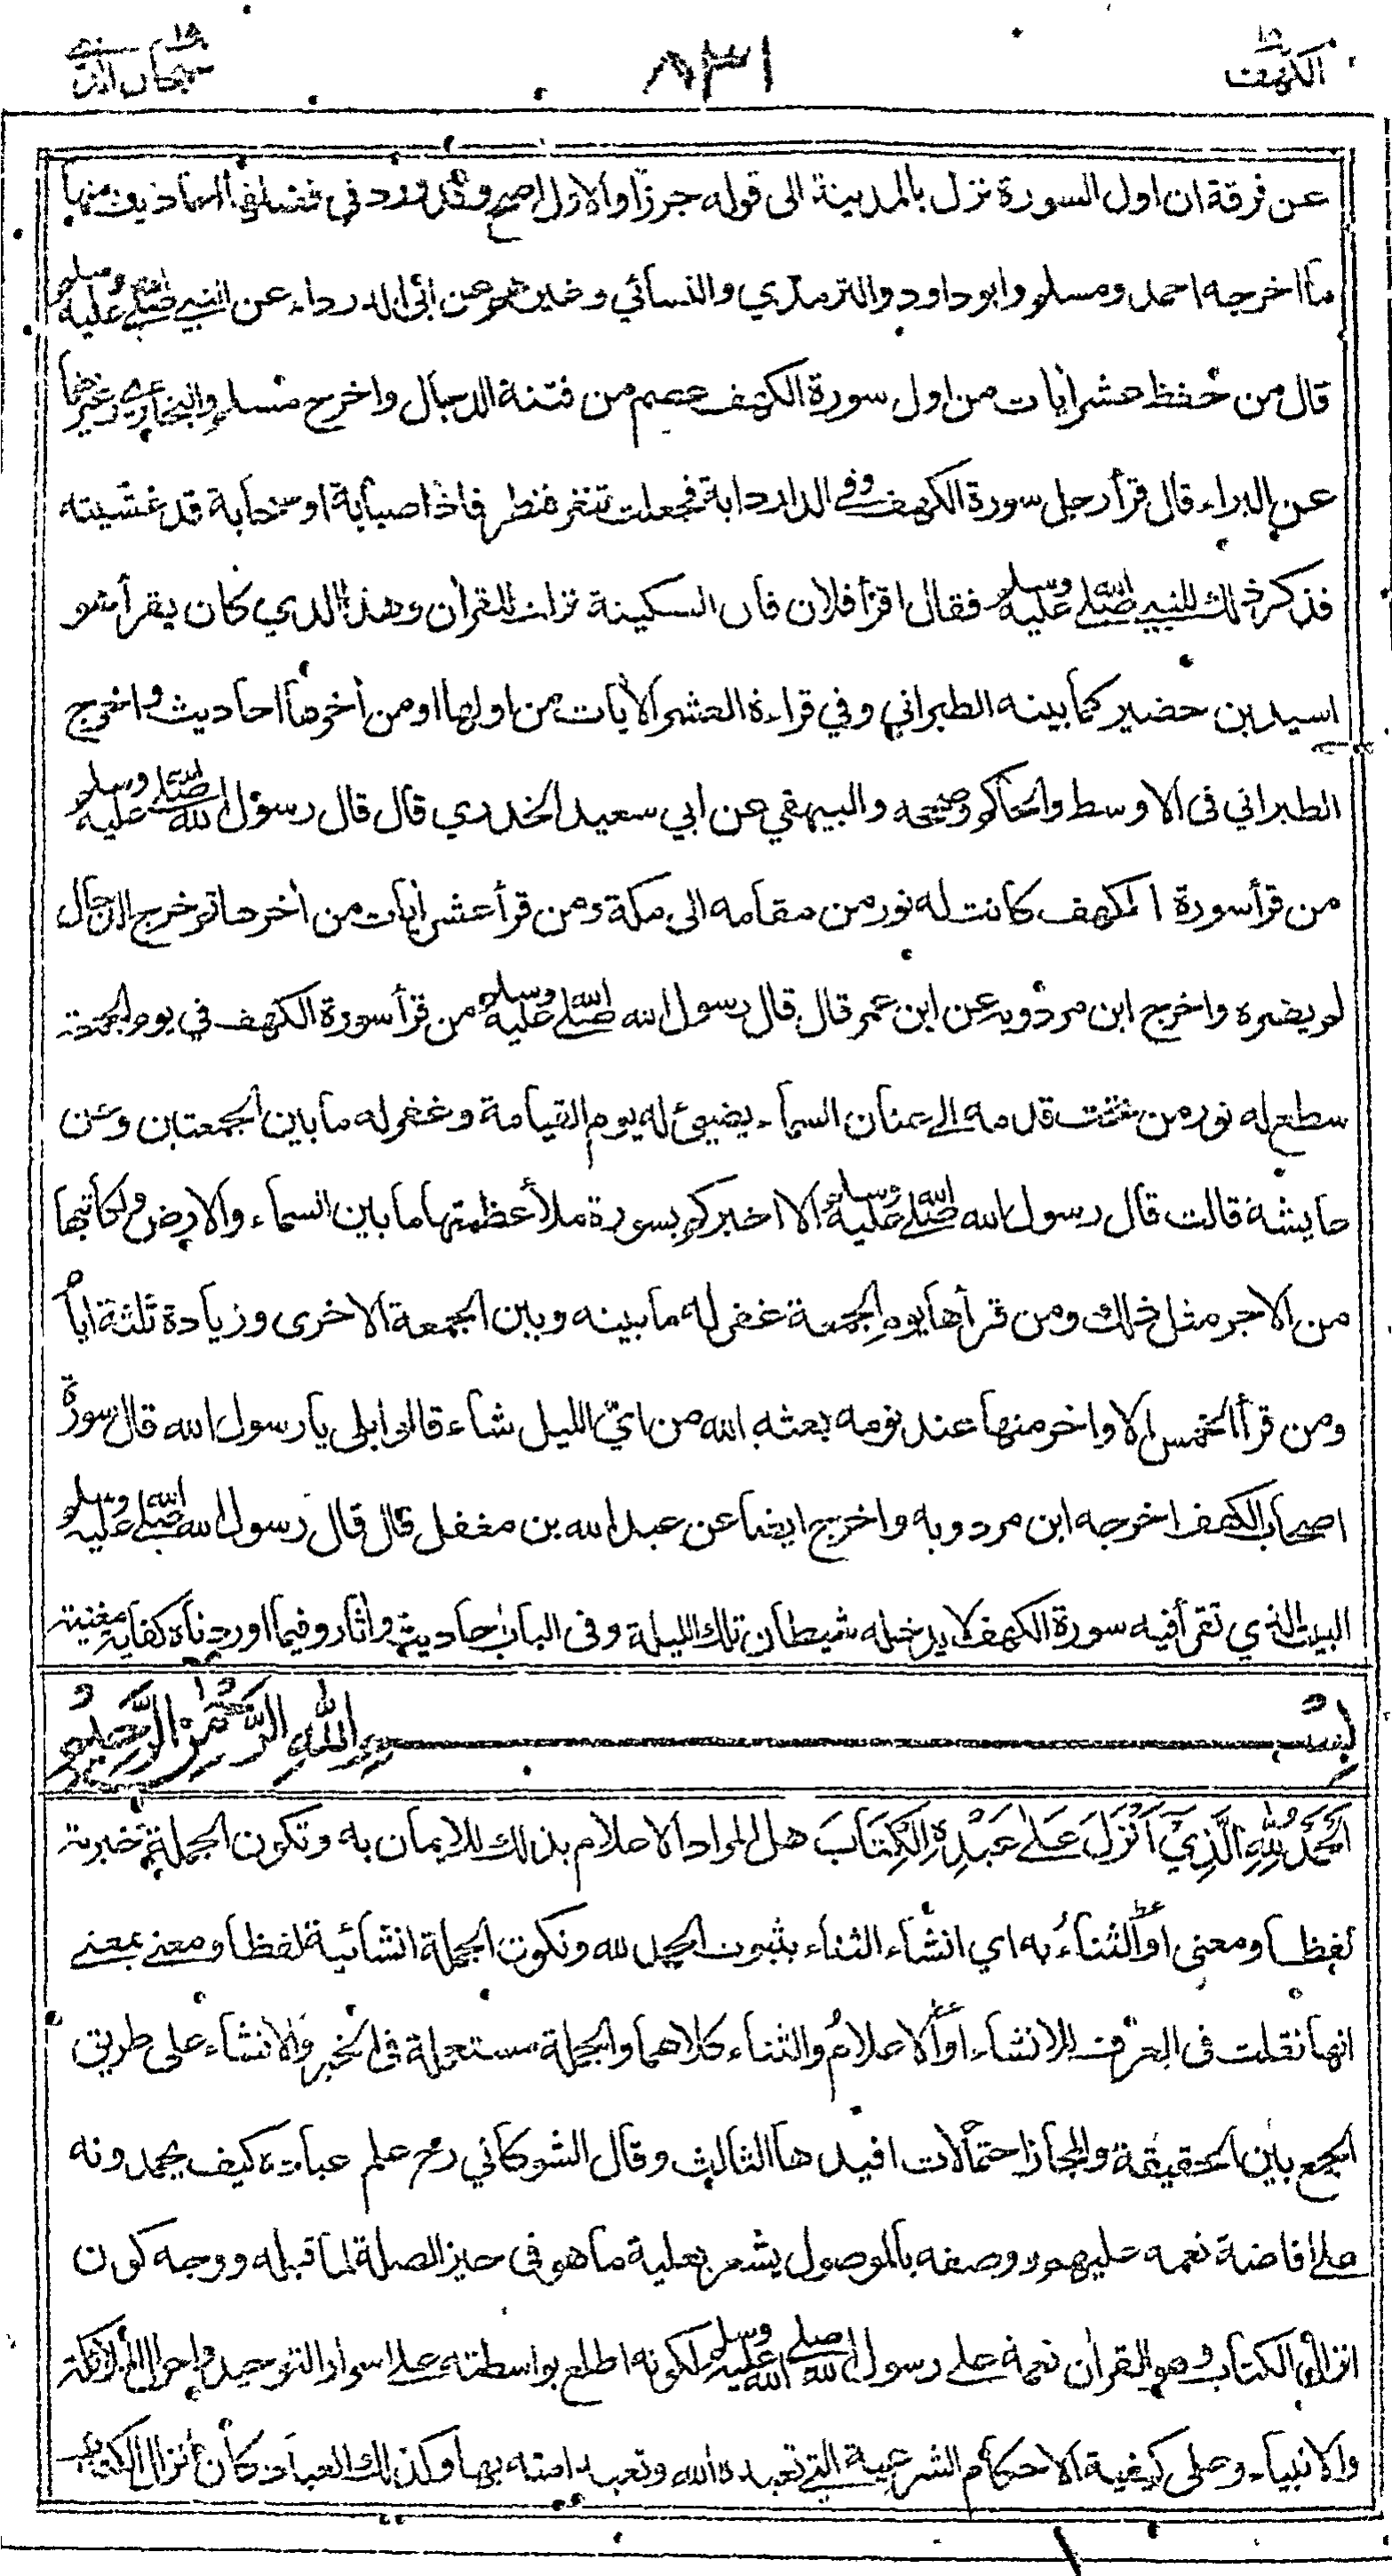 الكهف ١٨
٨٣١
سبحان الذي ١٥
عن فرقة ان اول السورة نزل بالمدينة الى قوله جرزا والاول اصح وقد ورد في فضلها احاديث منها
ما اخرجه احمد ومسلم وابو داود والترمذي والنسائي وغيرهم عن ابى الدرداء عن النبي صلى الله عليه وسلم
قال من حفظ عشر اٰيات من اول سورة الكهف عصم من فتنة الدجال واخرج مسلم والبخاري وغيرهما
عن البراء قال قرأ رجل سورة الكهف وفي الدار دابة فجعلت تنفر فنظر فاذا ضبابة او سحابة قد غشيته
فذكر ذلك للنبي صلى الله عليه وسلم فقال اقرأ فلان فان السكينة نزلت للقراٰن وهذا الذي كان يقرأ هو
اسيد بن حضير كما بينه الطبراني وفي قراءة العشر الاٰيات من اولها او من اٰخرها احاديث واخرج
الطبراني فى الاوسط والحاكم وصححه والبيهقي عن ابي سعيد الخدري قال قال رسول الله صلى الله عليه وسلم
من قرأ سورة الكهف كانت له نور من مقامه الى مكة ومن قرأ عشر اٰيات من اٰخرها ثم خرج الدجال
لم يضره واخرج ابن مردويه عن ابن عمر قال قال رسول الله صلى الله عليه وسلم من قرأ سورة الكهف في يوم الجمعة
سطع له نور من تحت قدمه الى عنان السماء يضيئ له يوم القيامة وغفر له ما بين الجمعتين وعن
عايشة قالت قال رسول الله صلى الله عليه وسلم الا اخبركم بسورة ملأ عظمتها ما بين السماء والارض ولكاتبها
من الاجر مثل ذلك ومن قرأها يوم الجمعة غفر له ما بينه وبين الجمعة الاخرى وزيادة ثلثة ايام
ومن قرأ الخمس الاواخر منها عند نومه بعثه الله من ايّ الليل شاء قالوا بلى يا رسول الله قال سورة
اصحاب الكهف اخرجه ابن مردويه واخرج ايضا عن عبد الله بن مغفل قال قال رسول الله صلى الله عليه وسلم
البيت الذي تقرأ فيه سورة الكهف لا يدخله شيطان تلك الليلة وفى الباب احاديث واٰثار وفيما اوردناه كفاية مغنية
بِسْمِ اللهِ الرَّحْمٰنِ الرَّحِيمِ
اَلْحَمْدُ لِلّٰهِ الَّذِيْٓ اَنْزَلَ عَلٰى عَبْدِهِ الْكِتَابَ هل المراد الاعلام بذلك للايمان به وتكون الجملة خبرية
لفظا ومعنى او الثناءُ به اي انشاء الثناء بثبوت الحمد لله وتكون الجملة انشائية لفظا ومعنى بمعنى
انها نقلت فى العرف للانشاء او الاعلامُ والثناء كلاهما والجملة مستعملة فى الخبر والانشاء على طريق
الجمع بين الحقيقة والمجاز احتمالات افيدها الثالث وقال الشوكاني رح علم عباده كيف يحمدونه
على افاضة نعمه عليهم ووصفه بالموصول يشعر بعلية ما هو فى حيز الصلة لما قبله ووجه كون
انزال الكتاب وهو القراٰن نعمة على رسول الله صلى الله عليه وسلم لكونه اطلع بواسطته على اسرار التوحيد واحوال الملائكة
والانبياء وعلى كيفية الاحكام الشرعية التى تعبده الله وتعبد امته بها وكذلك العباد كان انزال الكتاب